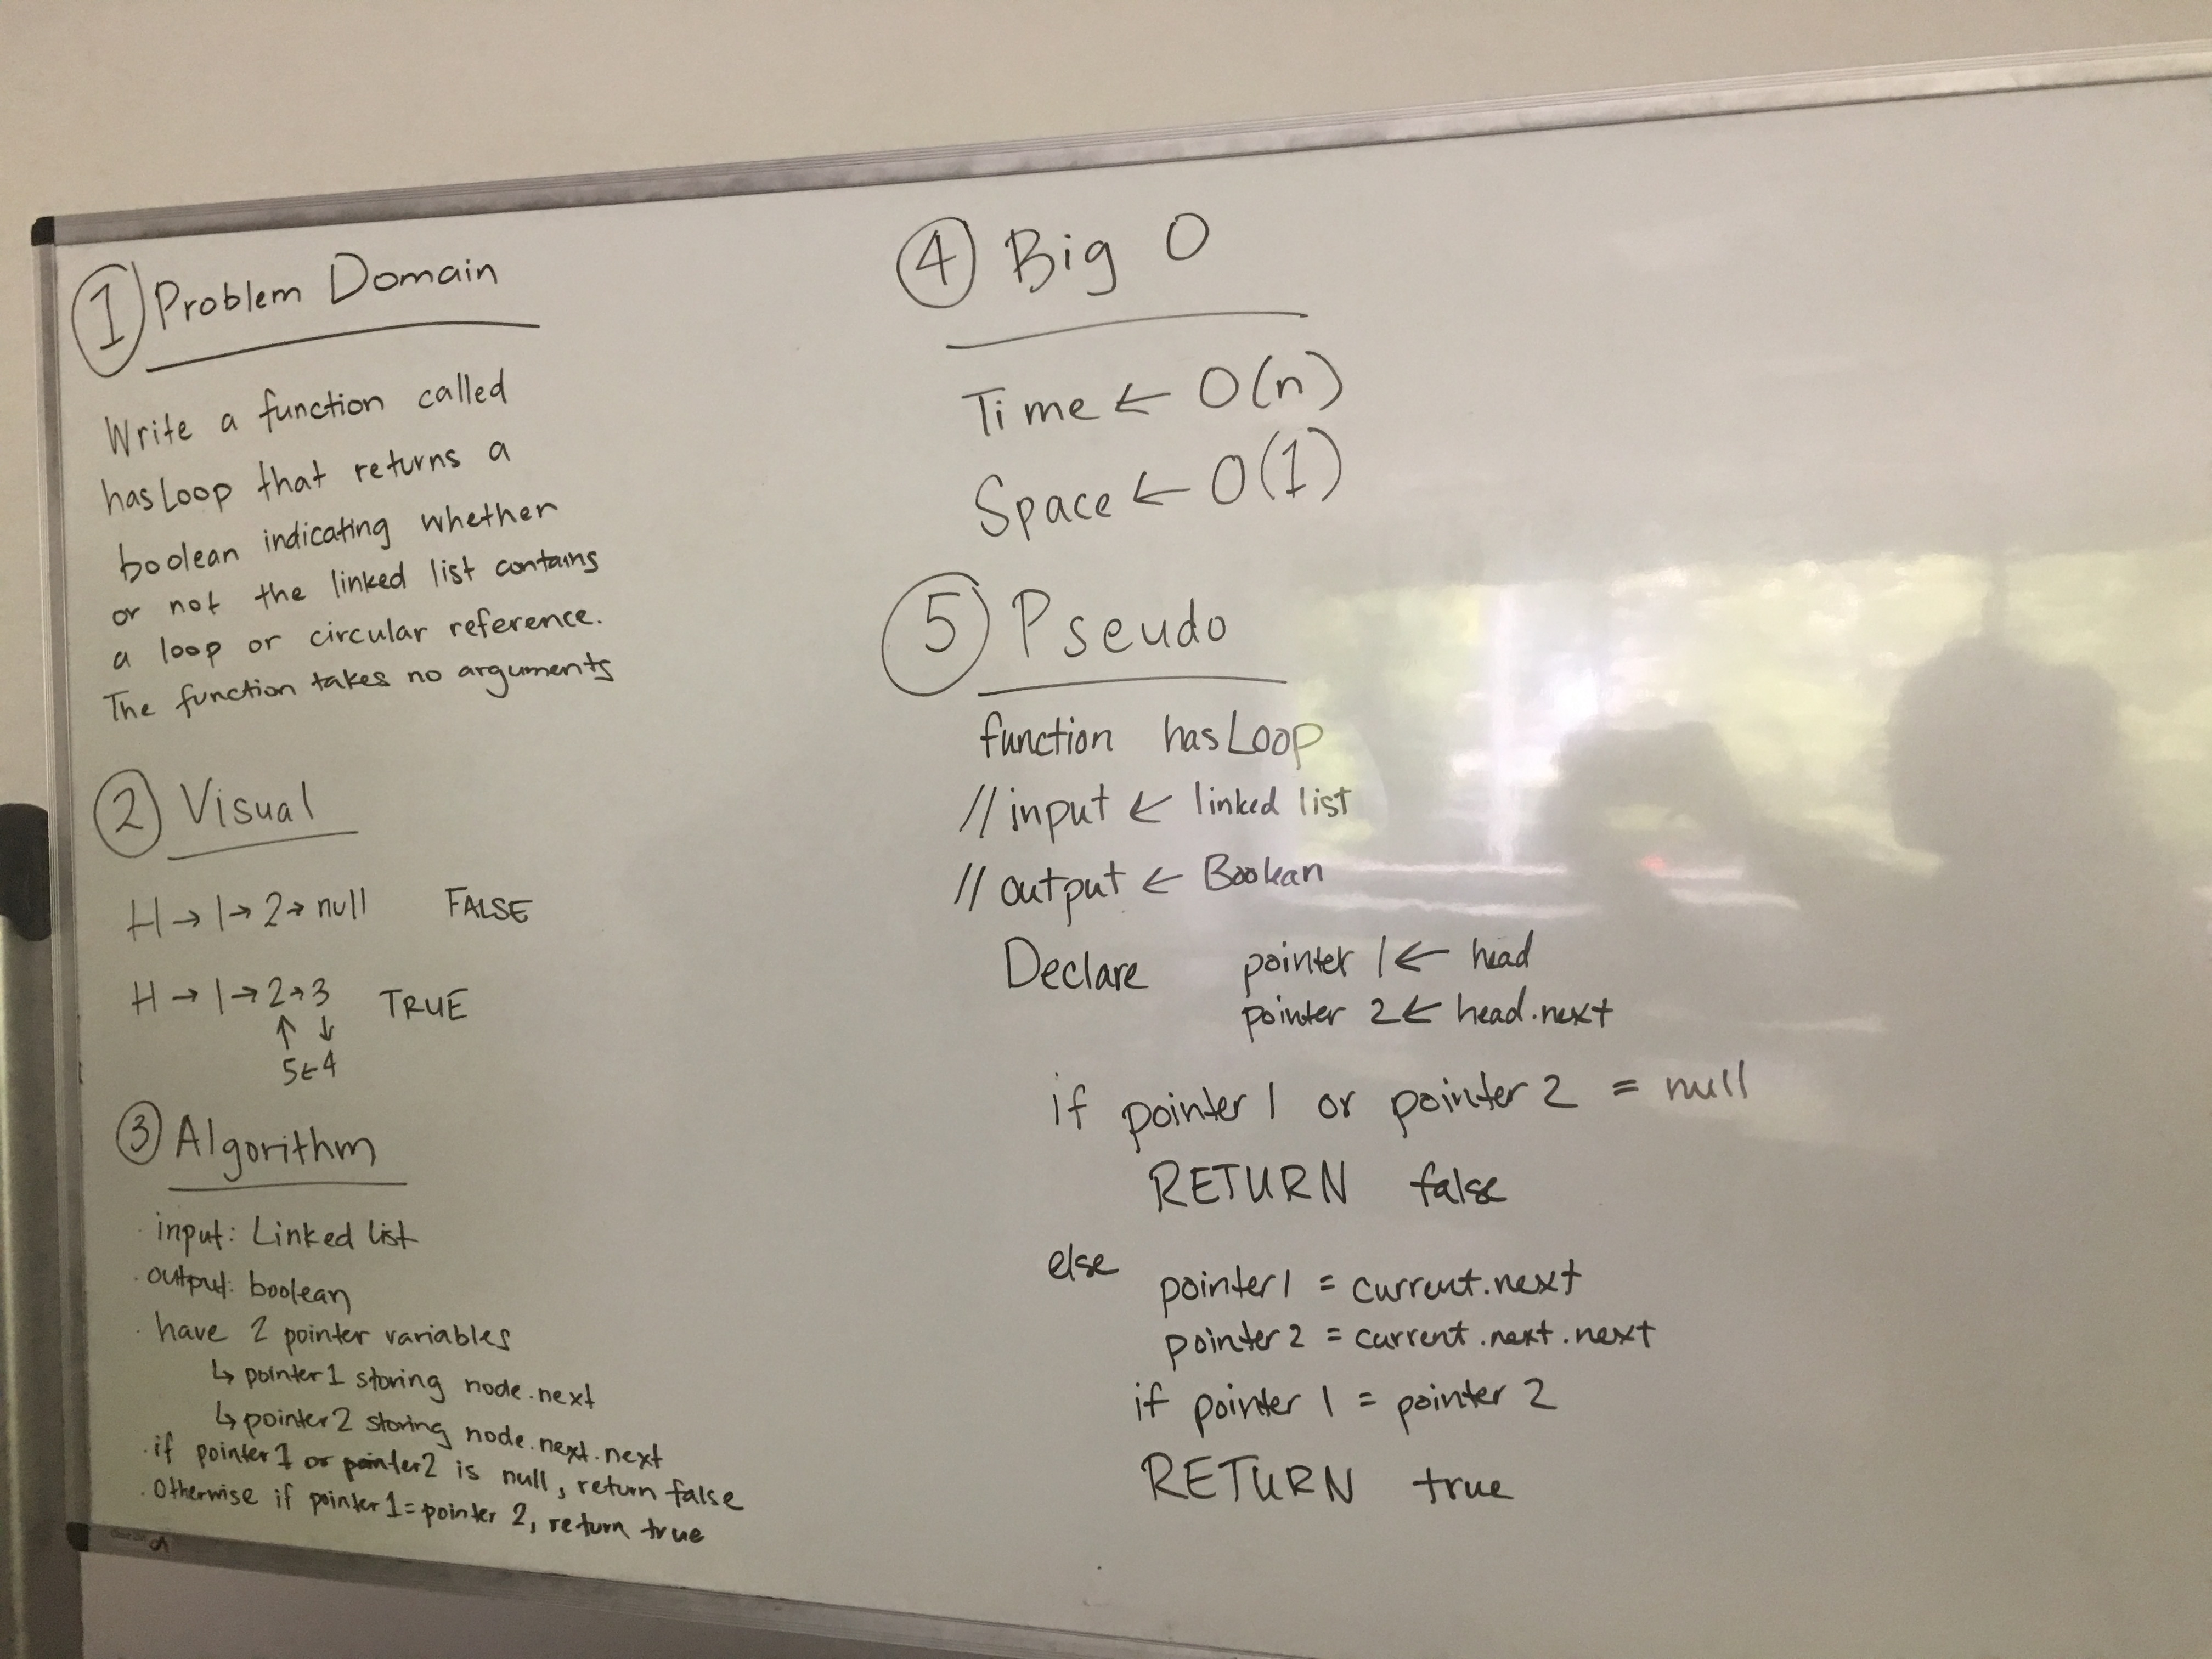 ① Problem Domain
Write a function called
hasLoop that returns a
boolean indicating whether
or not the linked list contains
a loop or circular reference.
The function takes no arguments
② Visual
H → 1 → 2 → null FALSE
H → 1 → 2 → 3 TRUE
↑ ↓
5 ← 4
③ Algorithm
· input: Linked list
· output: boolean
· have 2 pointer variables
↳ pointer1 storing node.next
↳ pointer2 storing node.next.next
· if pointer1 or pointer2 is null, return false
· Otherwise if pointer1 = pointer 2, return true
④ Big O
Time ← O(n)
Space ← O(1)
⑤ Pseudo
function hasLoop
// input ← linked list
// output ← Boolean
Declare pointer 1 ← head
pointer 2 ← head.next
if pointer 1 or pointer 2 = null
RETURN false
else
pointer1 = current.next
pointer2 = current.next.next
if pointer 1 = pointer 2
RETURN true